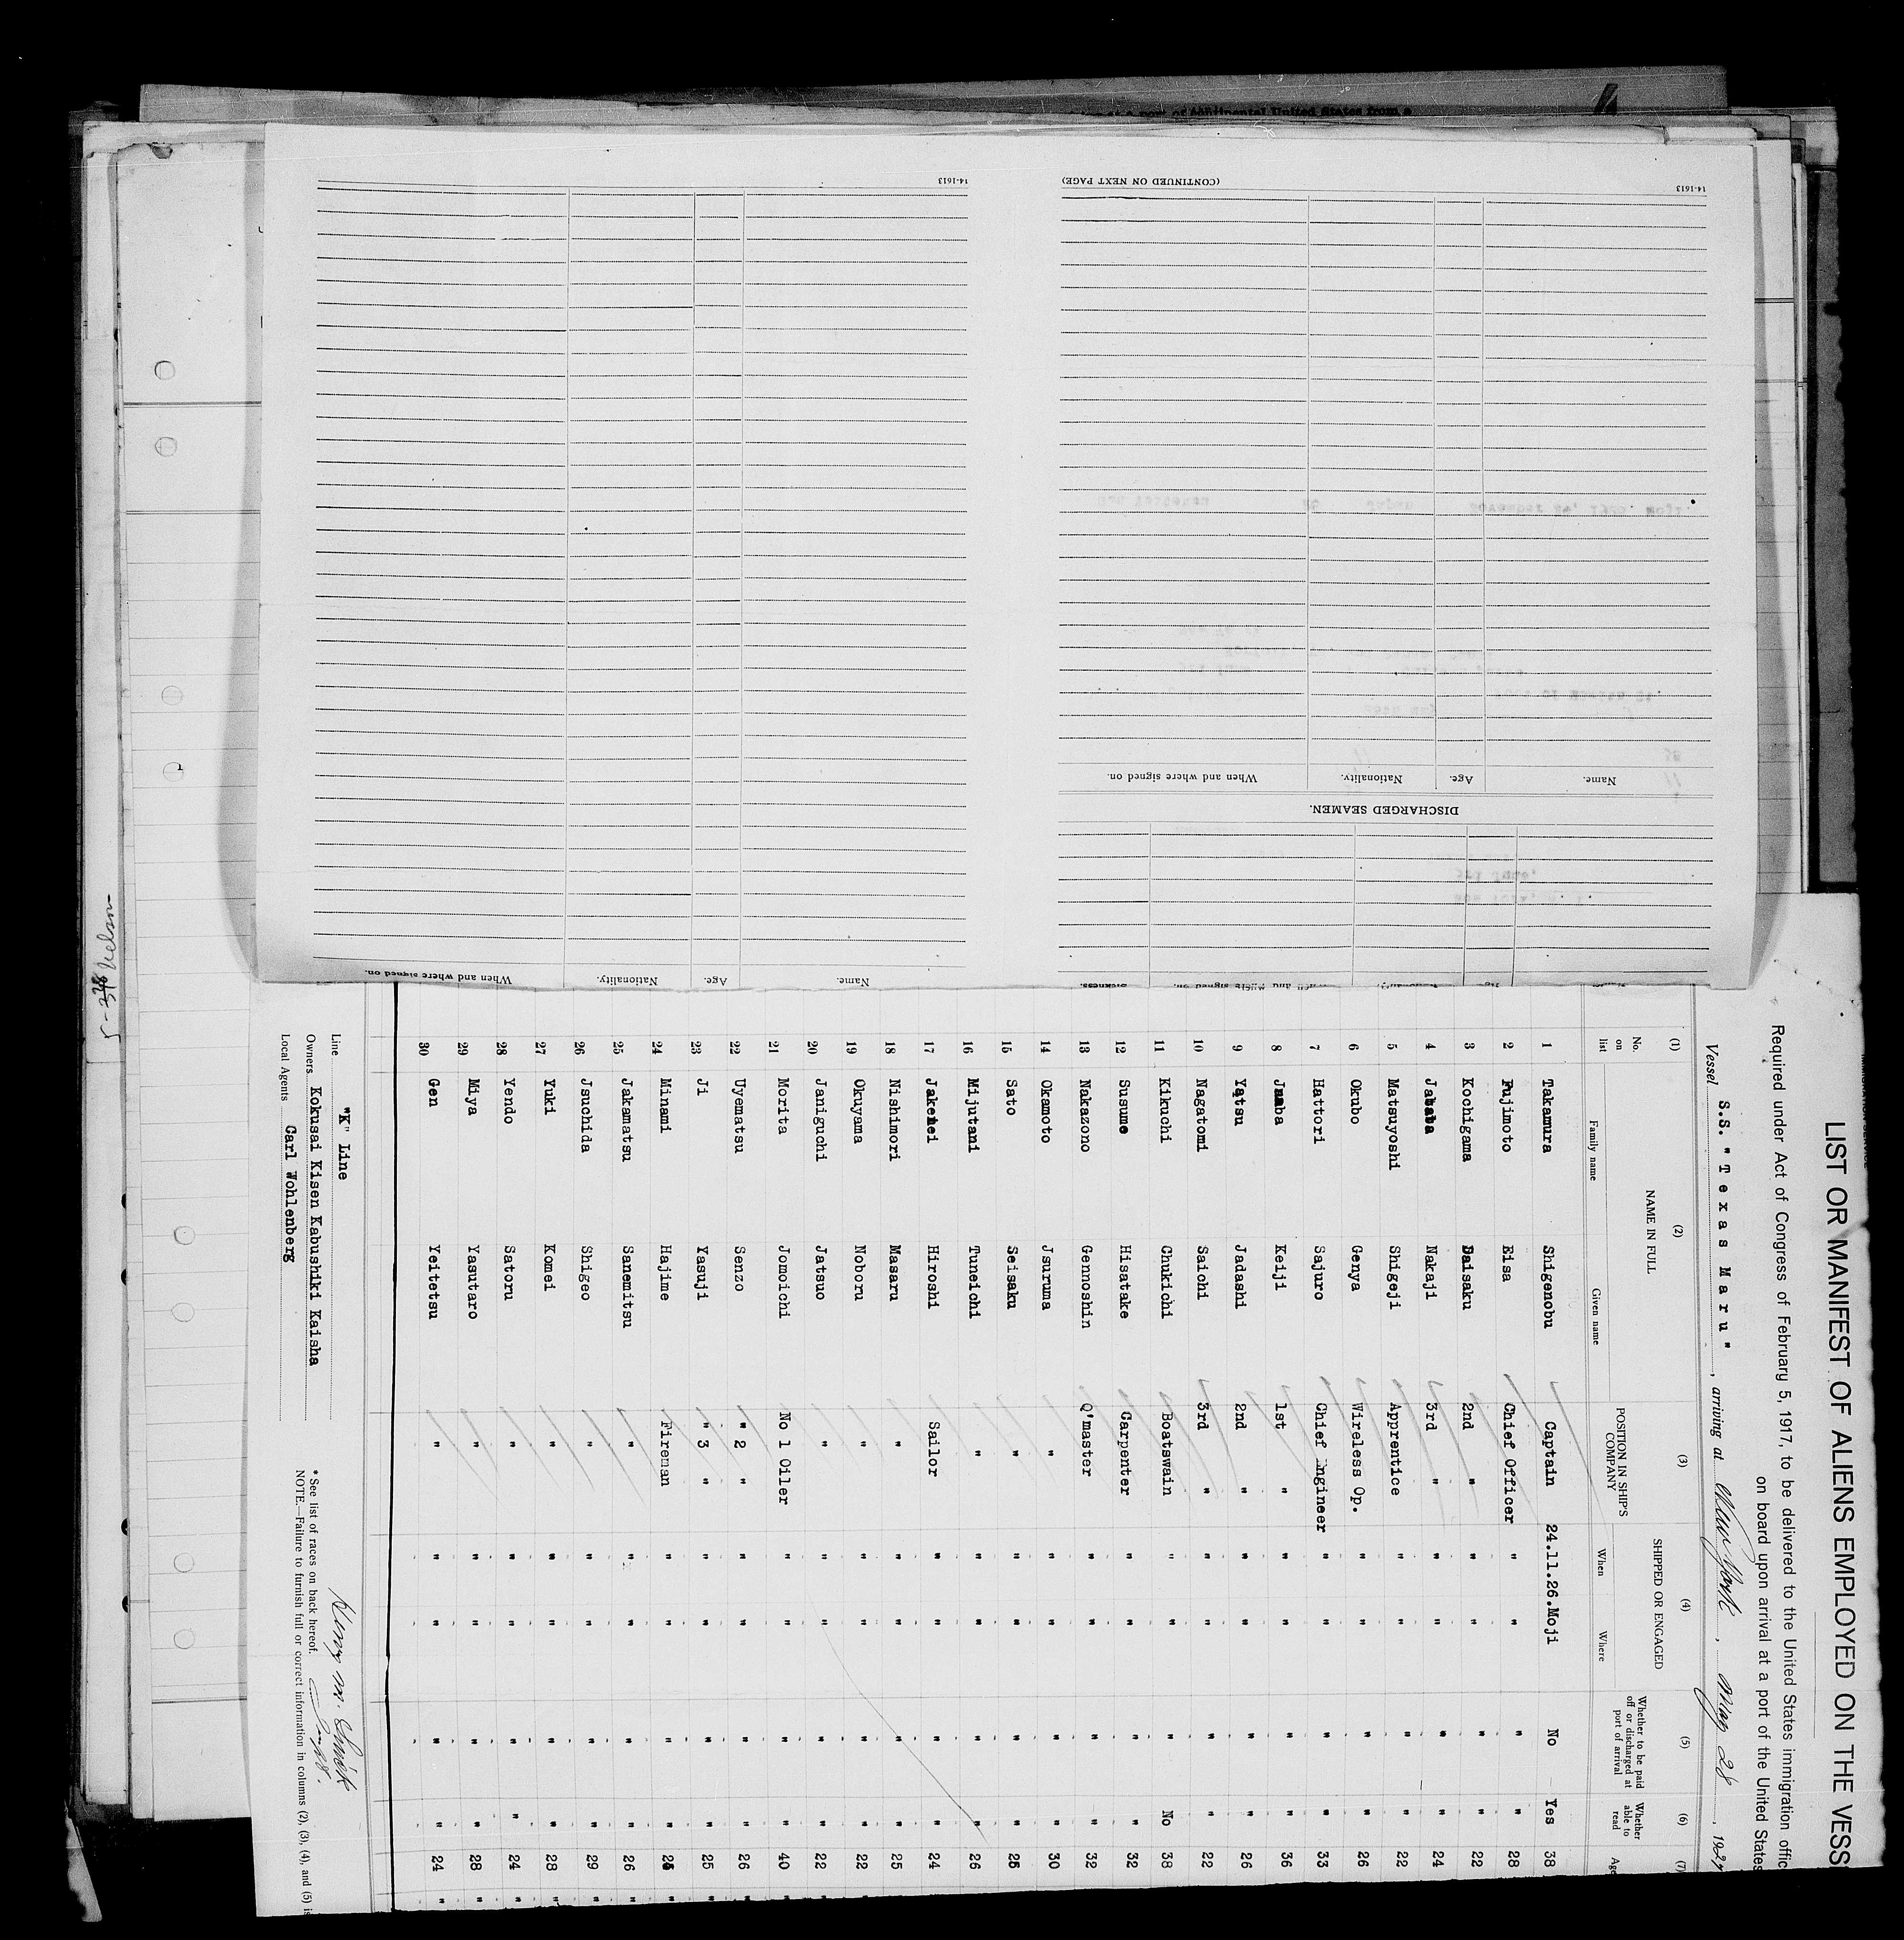 LIST OR MANIFEST OF ALIENS EMPLOYED ON THE VESS
Required under Act of Congress of February 5, 1917, to be delivered to the United States immigration offic
on board upon arrival at a port of the United States
Vessel S.S. "Texas Maru", arriving at New York, May 28, 1927
(1) (2) (3) (4) (5) (6) (7)
No. on list NAME IN FULL POSITION IN SHIP'S COMPANY SHIPPED OR ENGAGED Whether to be paid off or discharged at port of arrival Whether able to read Age
Family name Given name When Where
1 Takamura Shigenobu Captain 24.11.26. Moji No Yes 38
2 Fujimoto Eisa Chief Officer " " " " 28
3 Kochigama Daisaku 2nd " " " " " 22
4 Jabata Nakaji 3rd " " " " " 24
5 Matsuyoshi Shigeji Apprentice " " " " 22
6 Okubo Genya Wireless Op. " " " " 26
7 Hattori Sajuro Chief Engineer " " " " 33
8 Jnaba Keiji 1st " " " " " 36
9 Yatsu Jadashi 2nd " " " " " 26
10 Nagatomi Saichi 3rd " " " " " 22
11 Kikuchi Chukichi Boatswain " " " No 38
12 Susume Hisatake Carpenter " " " " 32
13 Nakazono Gennoshin Q'master " " " " 32
14 Okamoto Jsuruma " " " " " 30
15 Sato Seisaku " " " " " 25
16 Mijutani Tuneichi " " " " " 26
17 Jakemei Hiroshi Sailor " " " " 24
18 Nishimori Masaru " " " " " 25
19 Okuyama Noboru " " " " " 22
20 Janiguchi Jatsuo " " " " " 22
21 Morita Jomoichi No 1 Oiler " " " " 40
22 Uyematsu Senzo " 2 " " " " " 26
23 Ji Yasuji " 3 " " " " " 25
24 Minami Hajime Fireman " " " " 25
25 Jakamatsu Sanemitsu " " " " " 26
26 Jsuchida Shigeo " " " " " 29
27 Yuki Komei " " " " " 28
28 Yendo Satoru " " " " " 24
29 Miya Yasutaro " " " " " 28
30 Gen Yeitetsu " " " " " 24
Line "K" Line
Owners Kokusai Kisen Kabushiki Kaisha
Local Agents Carl Wohlenberg
* See list of races on back hereof.
NOTE.—Failure to furnish full or correct information in columns (2), (3), (4), and (5) is
14-1613
(CONTINUED ON NEXT PAGE)
14-1613
Name. Age. Nationality. When and where signed on.
DISCHARGED SEAMEN.
Name. Age. Nationality. When and where signed on.
port of Continental United States from a